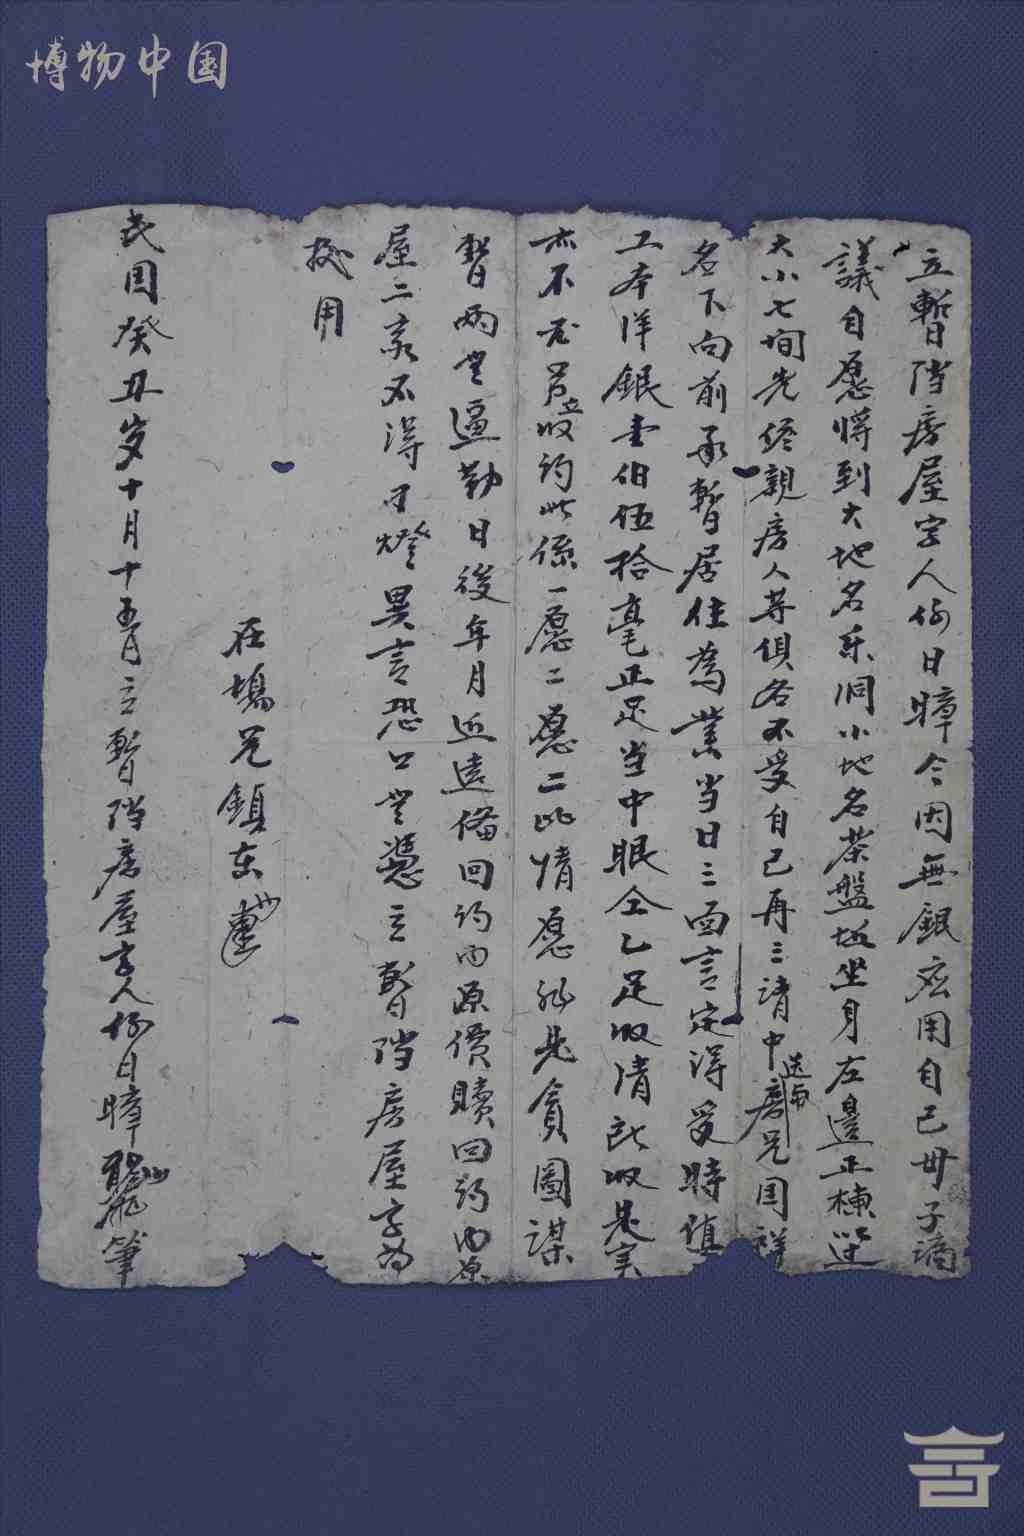 博物中国
立暫当房屋字人何日暲今因無銀应用自己毌子謫
議自愿将到大地名東洞小地名茶盤坵坐身左邊正棟
大小七间先侭親房人等俱各不受自己再三請中送與房兄国祥
名下向前承暫居住為業当日三面言定得受時值
工本洋銀壹佰伍拾毫正足当中眼仝乙足收清
亦不另立收约此係一愿二愿二比情愿贪圖謀
暫两無逼勒日後年月近遠備回约内原價贖回约内原
屋二家不得異言恐口無憑立暫当房屋字為
用
民国癸丑岁十月十五月立暫当房屋字人何日暲筆
在場兄鎮东